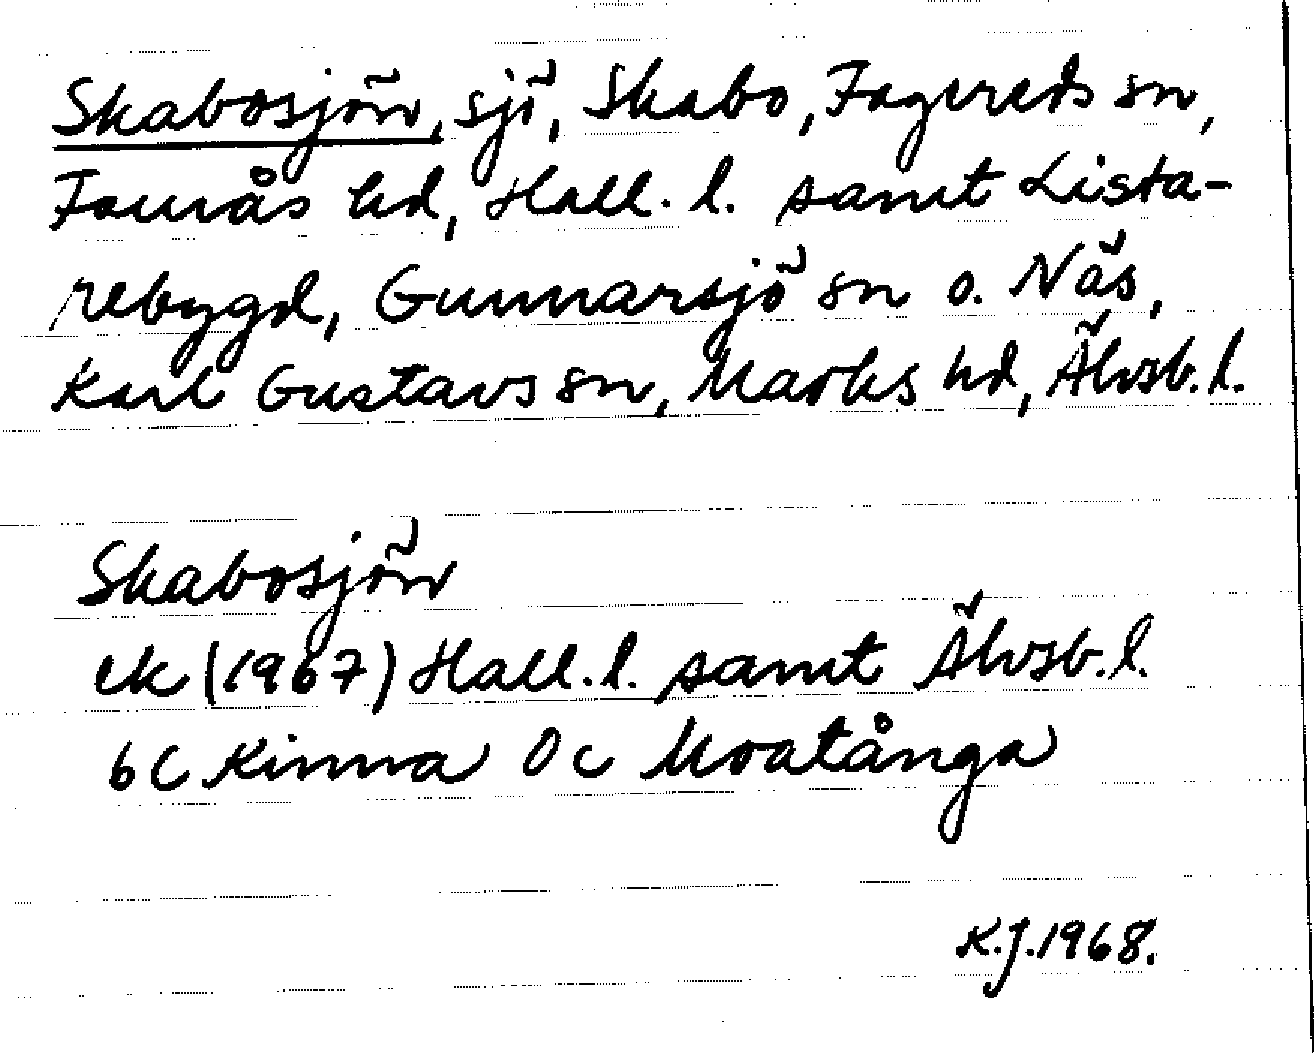 Skabosjön, sjö, Skabo, Fagereds sn,
Faurås hd, Hall. l. samt Lista-
rebygd, Gunnarsjö sn o. Näs,
Karl Gustavs sn, Marks hd, Älvsb. l.
Skabosjön
ek (1967) Hall. l. samt Älvsb. l.
6C Kinna 0c Mratånga
K.J. 1968.